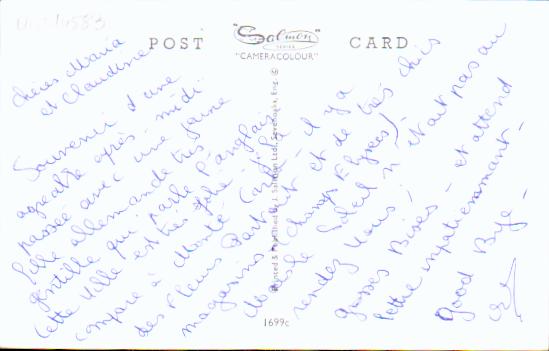 POST "Salmon" CARD
SERIES
"CAMERACOLOUR"
Chères Maria
et Claudine
Souvenir d'une
agréable après-midi
passée avec une jeune
fille allemande très
gentille qui parle l'anglais
Cette ville est très jolie
comparé à Monté Carlo - il y a
des fleurs partout et de très chics
magasins (Champs Elysées)
le soleil n'était pas au
rendez vous! -
gosses Bises - et attend
lettre impatiemment -
Good Bye -
Printed & Published by J. Salmon Ltd., Sevenoaks, Eng. ©
1699c